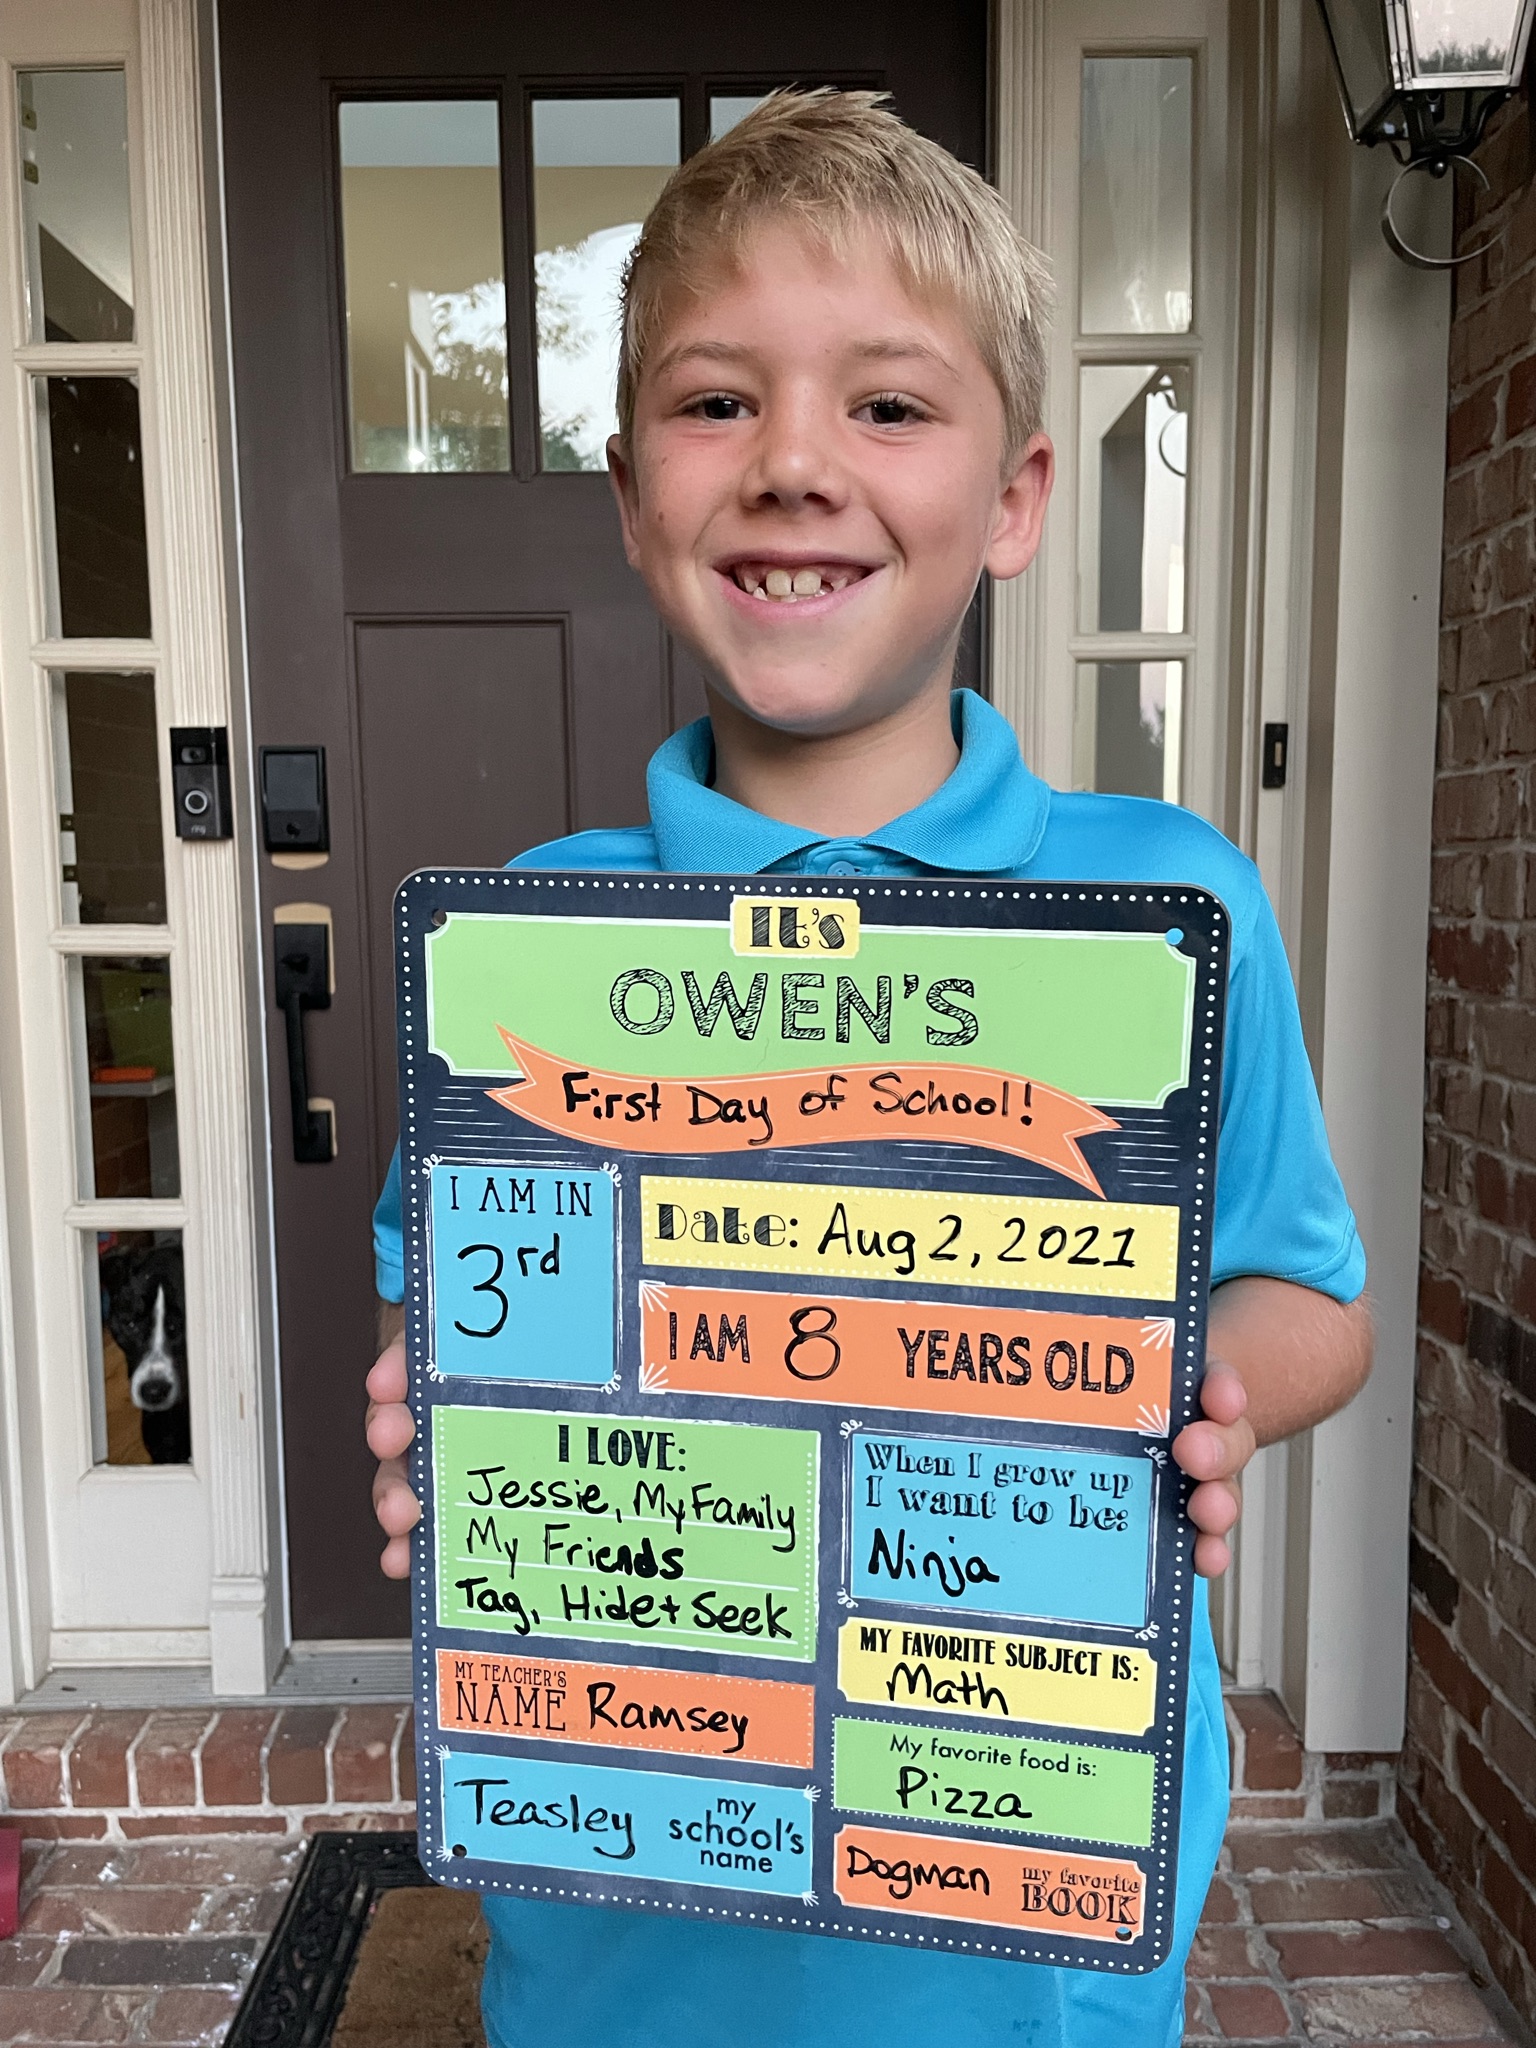 It's
OWEN'S
First Day of School!
I AM IN
3rd
Date: Aug 2, 2021
I AM 8 YEARS OLD
I LOVE:
Jessie, My Family
My Friends
Tag, Hide + Seek
When I grow up
I want to be:
Ninja
MY TEACHER'S
NAME Ramsey
MY FAVORITE SUBJECT IS:
Math
My favorite food is:
Pizza
Teasley
my
school's
name
Dogman
my favorite
BOOK
ring